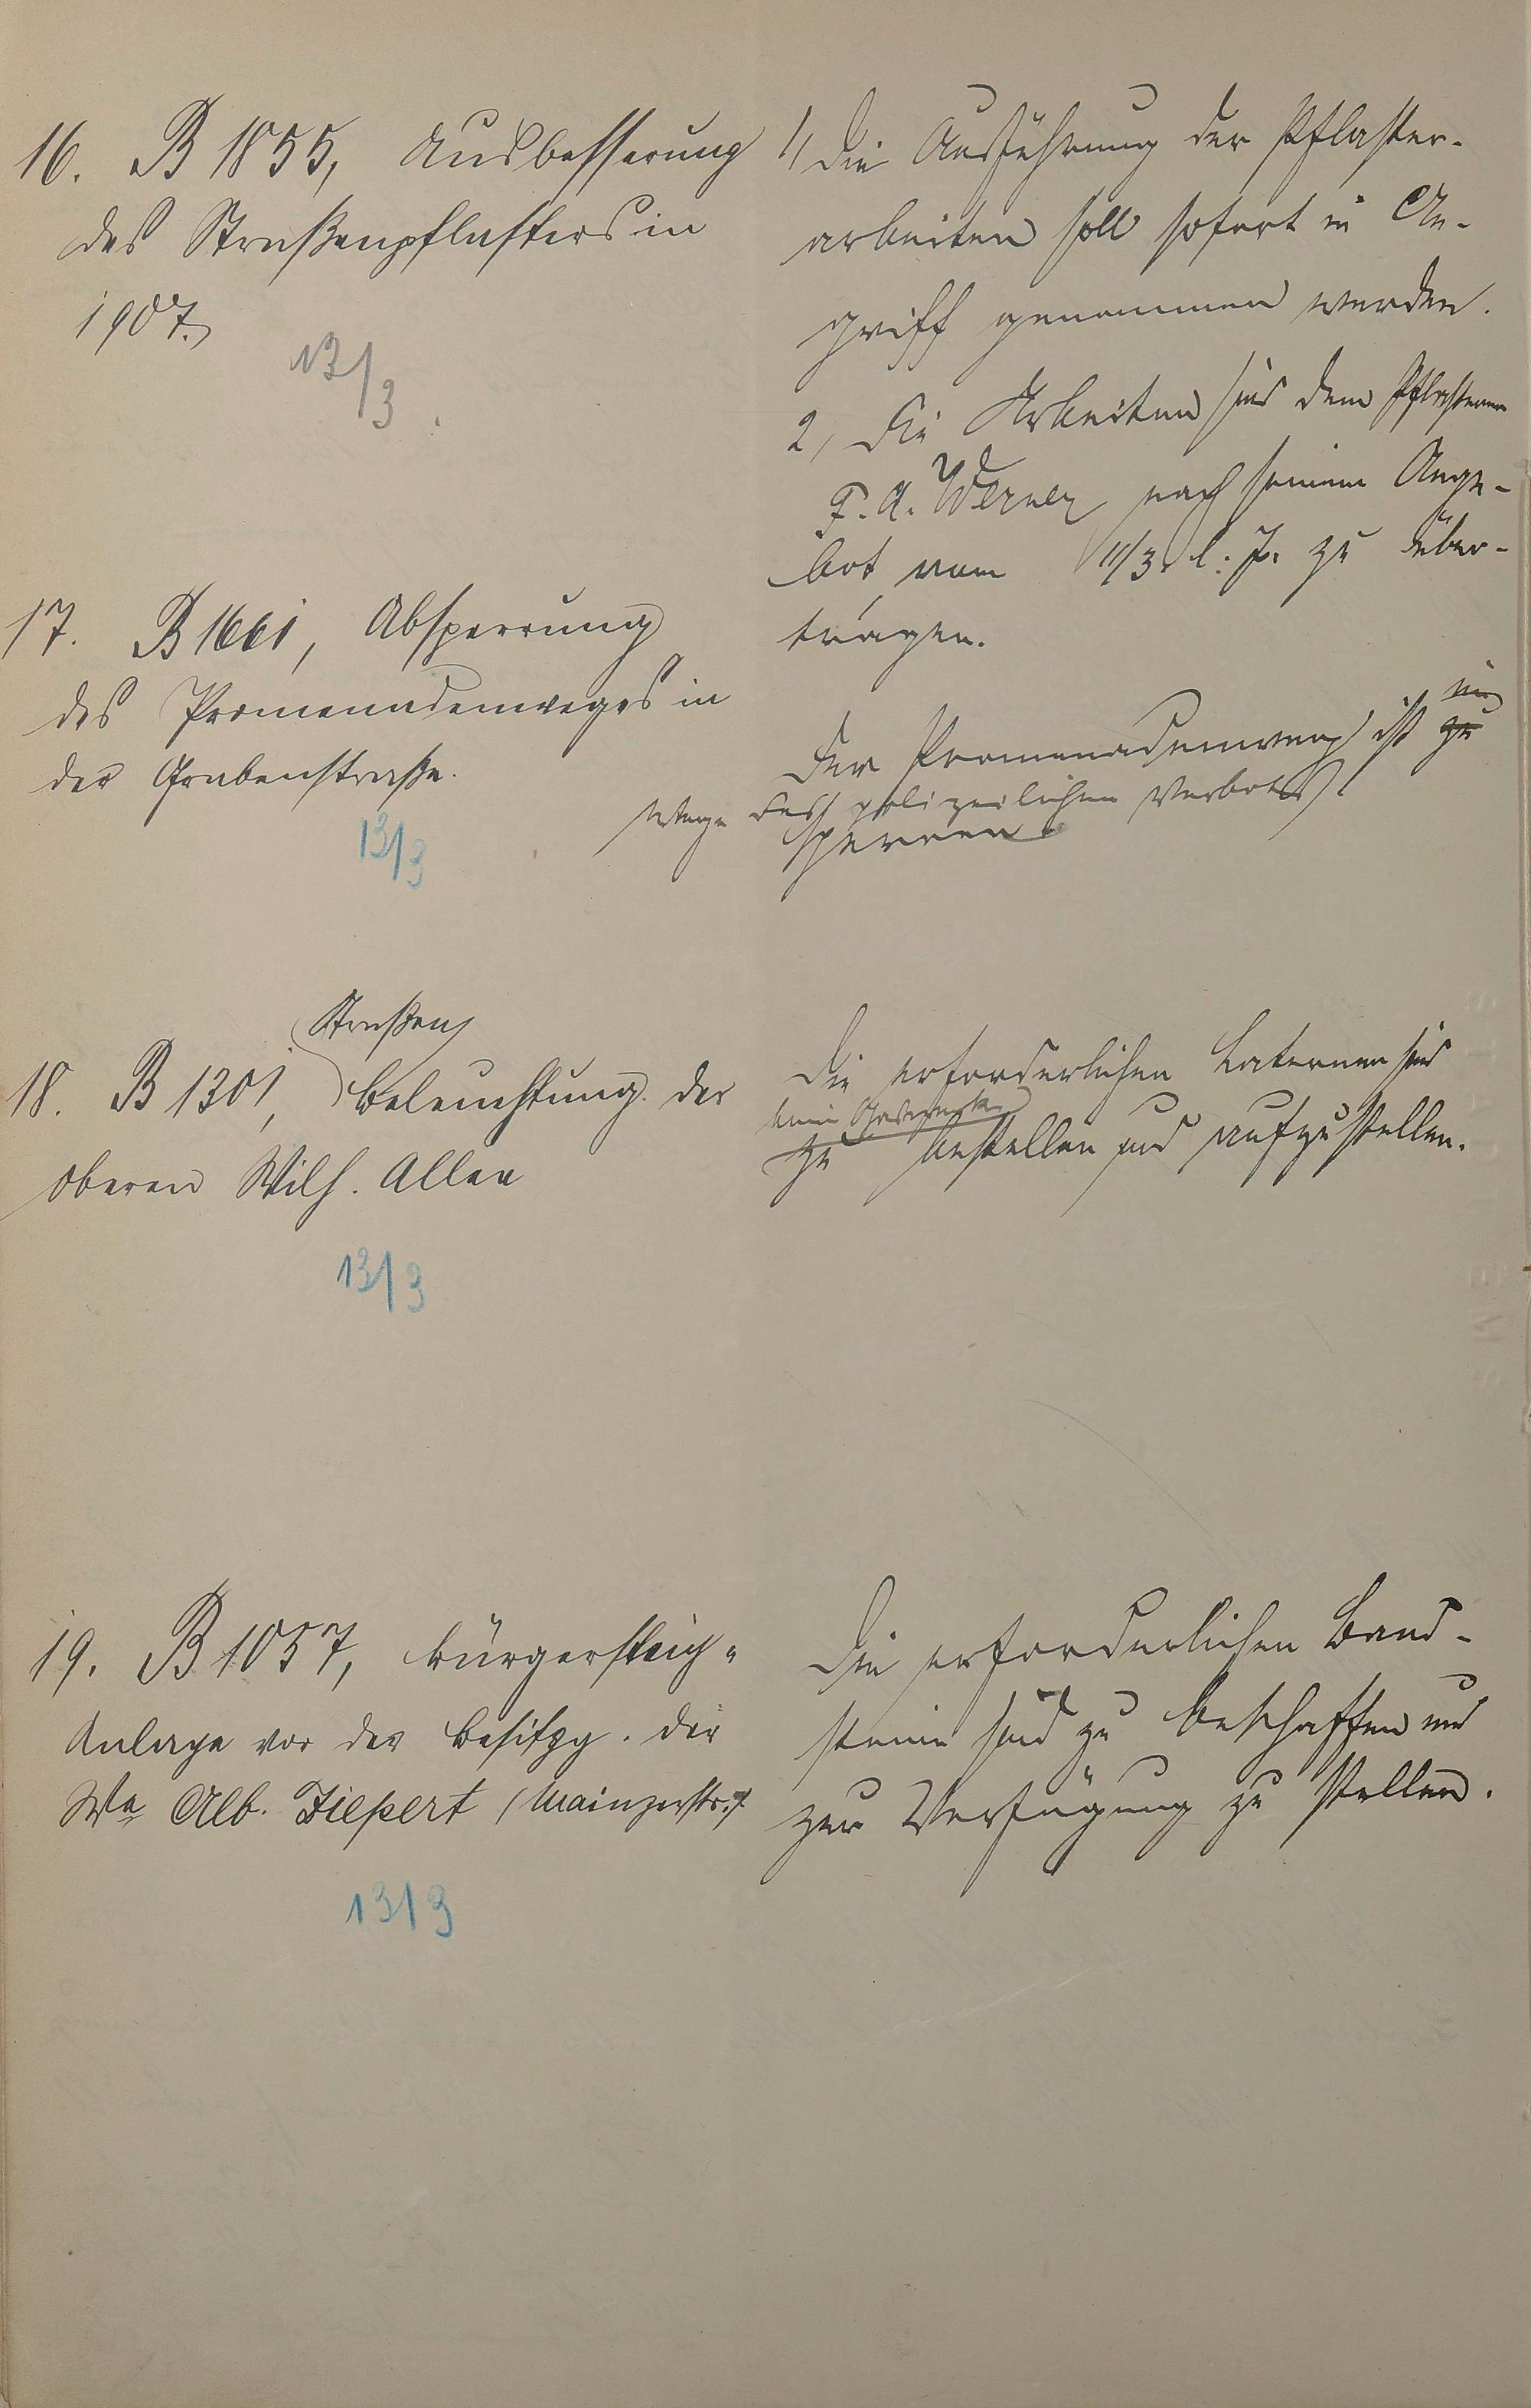 16. B 1855, Ausbesserung
des Straßenpflasters in
1907.
13/3.
1, Die Ausführung der Pflaster-
arbeiten soll sofort in An-
griff genommen werden.
2, Die Arbeiten sind dem Pflasterer
F. A. Werner nach seinem Ange-
bot vom 11/3. l. J. zu über-
tragen.
17. B 1661, Absperrung
des Promenadenweges in
der Grabenstraße.
13/3
Der Promenadenweg ist zu
des polizeilichen Verbots
sperren.
Straßen
18. B 1301, beleuchtung der
oberen Wilh. Allee
13/3
Die erforderlichen Laternen sind
beim Gaswerk
zu bestellen und aufzustellen.
19. B 1057, Bürgersteig-
Anlage vor der Besitzg. der
We Alb. Ziepert (Mainzerstr.).
13/3
Die erforderlichen Band-
steine sind zu beschaffen und
zur Verfügung zu stellen.